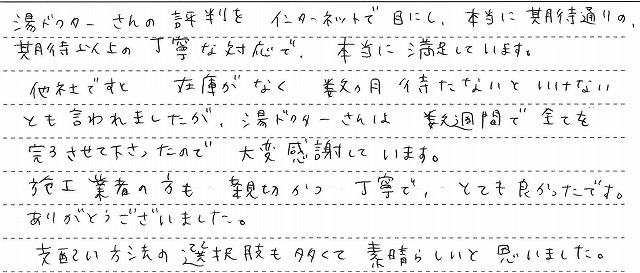 湯ドクターさんの評判を インターネットで目にし、本当に期待通りの、
期待以上の丁寧な対応で、本当に満足しています。
他社ですと 在庫がなく 数ヶ月待たないといけない
とも言われましたが、湯ドクターさんは 数週間で全てを
完了させて下さったので 大変感謝しています。
施工業者の方も 親切かつ 丁寧で、とても良かったです。
ありがとうございました。
支配い方法の選択肢も多くて 素晴らしいと思いました。